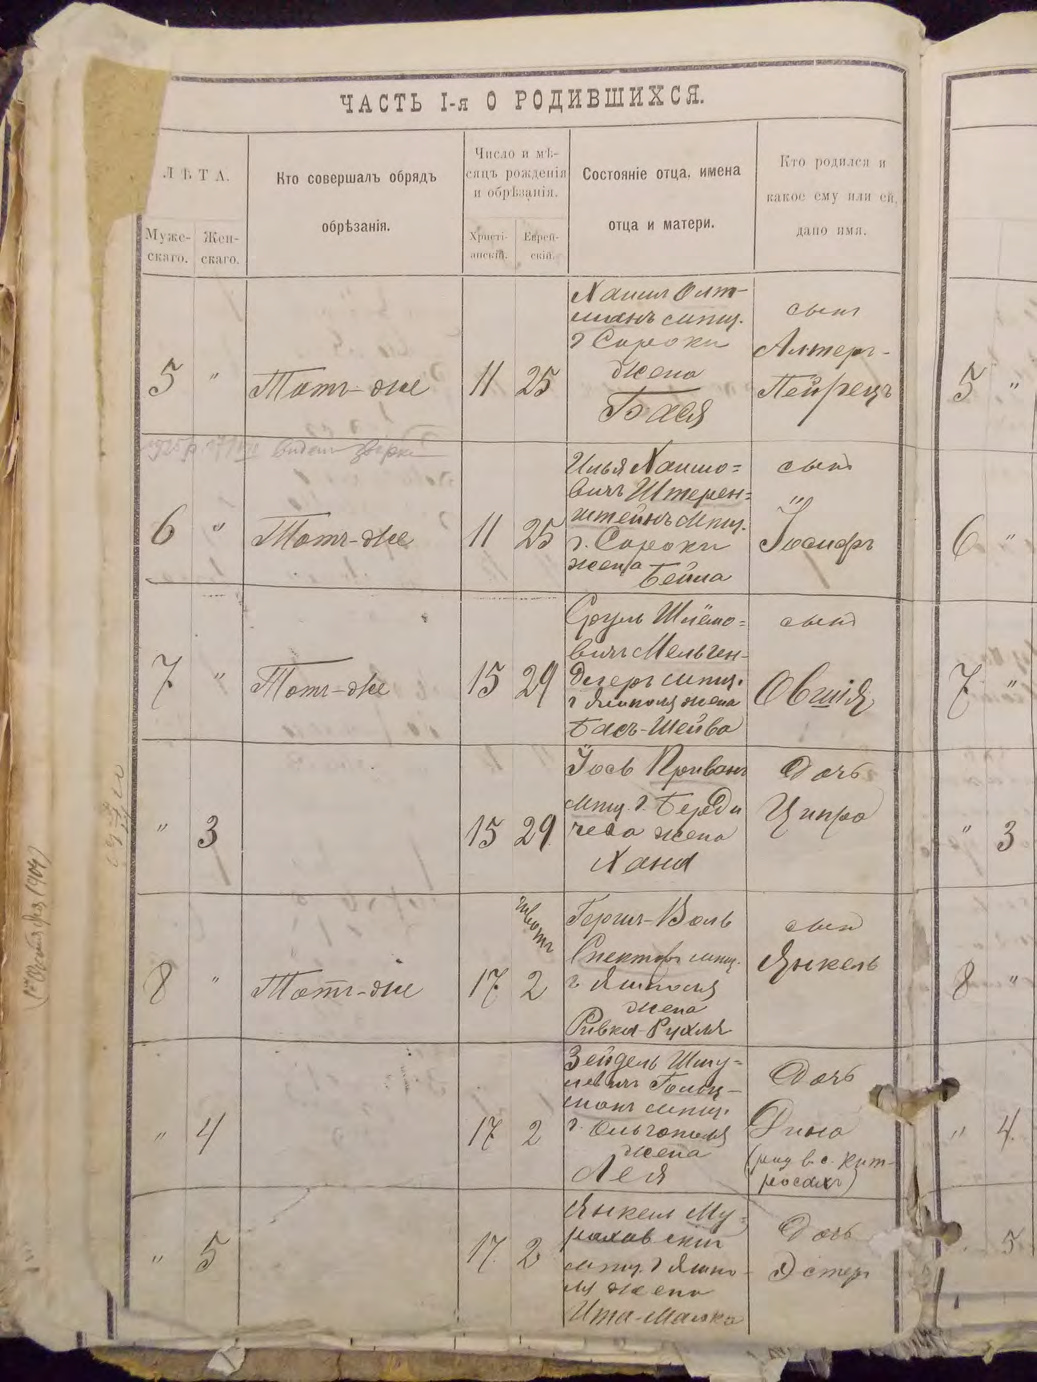 ЧАСТЬ I-я О РОДИВШИХСЯ.
ЛѢТА.
Муже-
скаго.
Жен-
скаго.
Кто совершалъ обрядъ
обрѣзанія.
Число и мѣ-
сяцъ рожденія
и обрѣзанія.
Христі-
анскій.
Еврей-
скій.
Состояніе отца, имена
отца и матери.
Кто родился и
какое ему или ей
дано имя.
5 " Тотъ-же 11 25
Хаимъ Олт-
манъ мѣщ.
г Сороки
жена
Бася
сынъ
Алтеръ-
Пейрецъ
5 "
6 " Тотъ-же 11 25
Илья Хаимо=
вичъ Штерен-
штейнъ мѣщ.
г. Сороки
жена
Бейла
сынъ
"
Іосифъ
6 "
7 " Тотъ-же 15 29
Сруль Шлёмо=
вичъ
мѣщ.
г Ямполя жена
Бася-Шейва
сынъ
Овшія
7 "
" 3 15 29
Іось
мѣщ. г. Берди
чева жена
Хана
Дочь
Ципра
" 3
8 " Тотъ-же 17 2
Гершъ-Волъ
Спекторъ мѣщ.
г Ямполя
жена
Ривка-Рухля
сынъ
Янкель
8 "
" 4 17 2
Зейдель Шму-
левичъ Голц-
манъ мѣщ.
г. Ольгополя
жена
Лея
Дочь
Дина
(род в с. Кит-
росахъ)
" 4
" 5 17 2
Янкель Му-
раховскій
мѣщ. г Ямпо-
ля жена
Ита-Малка
Дочь
Эстер
5